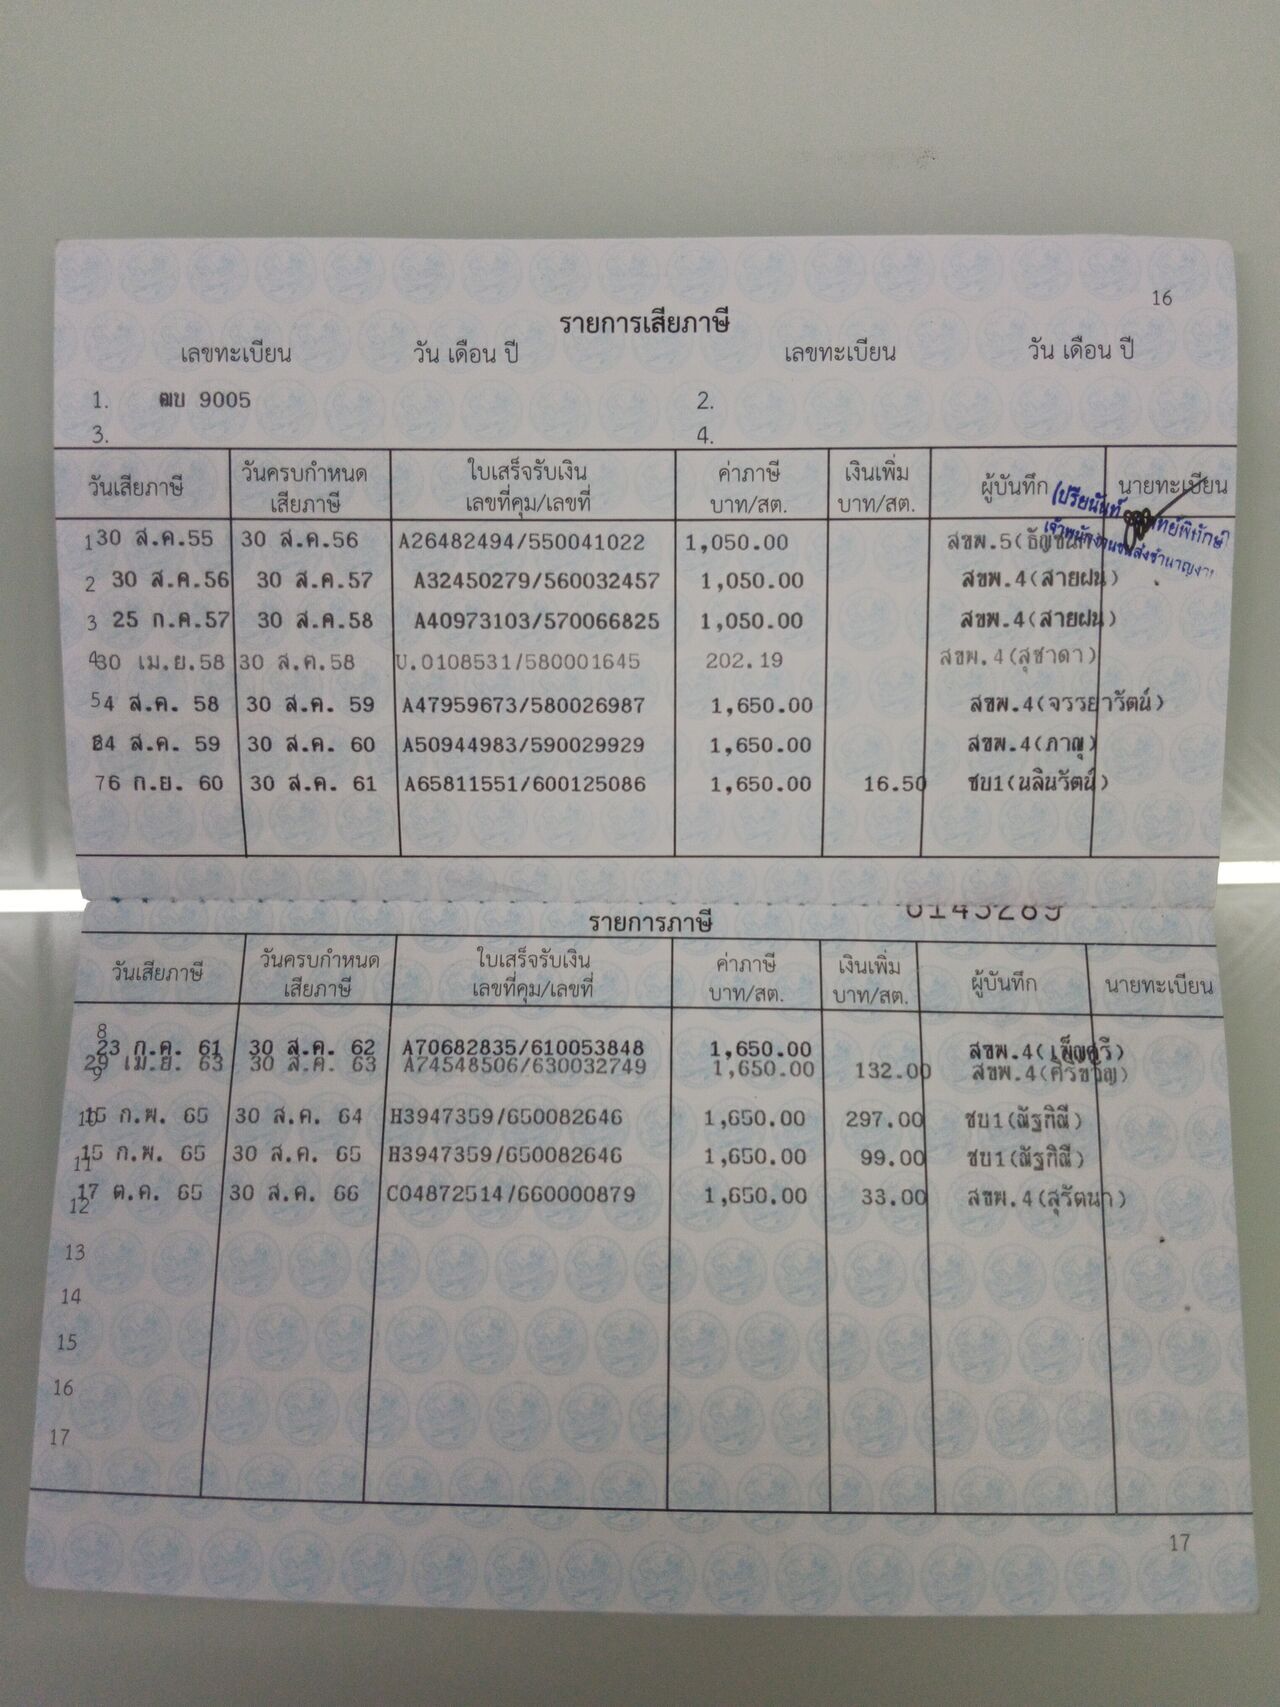 16
รายการเสียภาษี
เลขทะเบียน วัน เดือน ปี เลขทะเบียน วัน เดือน ปี
1. ฒบ 9005 2.
3. 4.
วันเสียภาษี วันครบกำหนดเสียภาษี ใบเสร็จรับเงิน เลขที่คุม/เลขที่ ค่าภาษี บาท/สต. เงินเพิ่ม บาท/สต. ผู้บันทึก นายทะเบียน
1 30 ส.ค.55 30 ส.ค.56 A26482494/550041022 1,050.00 สขพ.5
2 30 ส.ค.56 30 ส.ค.57 A32450279/560032457 1,050.00 สขพ.4(สายฝน)
3 25 ก.ค.57 30 ส.ค.58 A40973103/570066825 1,050.00 สขพ.4(สายฝน)
4 30 เม.ย.58 30 ส.ค.58 U.0108531/580001645 202.19 สขพ.4(สุชาดา)
5 4 ส.ค. 58 30 ส.ค. 59 A47959673/580026987 1,650.00 สขพ.4(จรรยารัตน์)
24 ส.ค. 59 30 ส.ค. 60 A50944983/590029929 1,650.00 สขพ.4(ภาณุ)
7 6 ก.ย. 60 30 ส.ค. 61 A65811551/600125086 1,650.00 16.50 ชบ1(นลินรัตน์)
รายการภาษี 6145289
วันเสียภาษี วันครบกำหนดเสียภาษี ใบเสร็จรับเงิน เลขที่คุม/เลขที่ ค่าภาษี บาท/สต. เงินเพิ่ม บาท/สต. ผู้บันทึก นายทะเบียน
8 23 ก.ค. 61 30 ส.ค. 62 A70682835/610053848 1,650.00 สขพ.4(เพ็ญศรี)
9 29 เม.ย. 63 30 ส.ค. 63 A74548506/630032749 1,650.00 132.00 สขพ.4(ศิริขวัญ)
10 15 ก.พ. 65 30 ส.ค. 64 H3947359/650082646 1,650.00 297.00 ชบ1(ณัฐกิณี)
11 15 ก.พ. 65 30 ส.ค. 65 H3947359/650082646 1,650.00 99.00 ชบ1(ณัฐกิณี)
12 17 ต.ค. 65 30 ส.ค. 66 C04872514/660000879 1,650.00 33.00 สขพ.4(สุรัตนา)
13
14
15
16
17
17